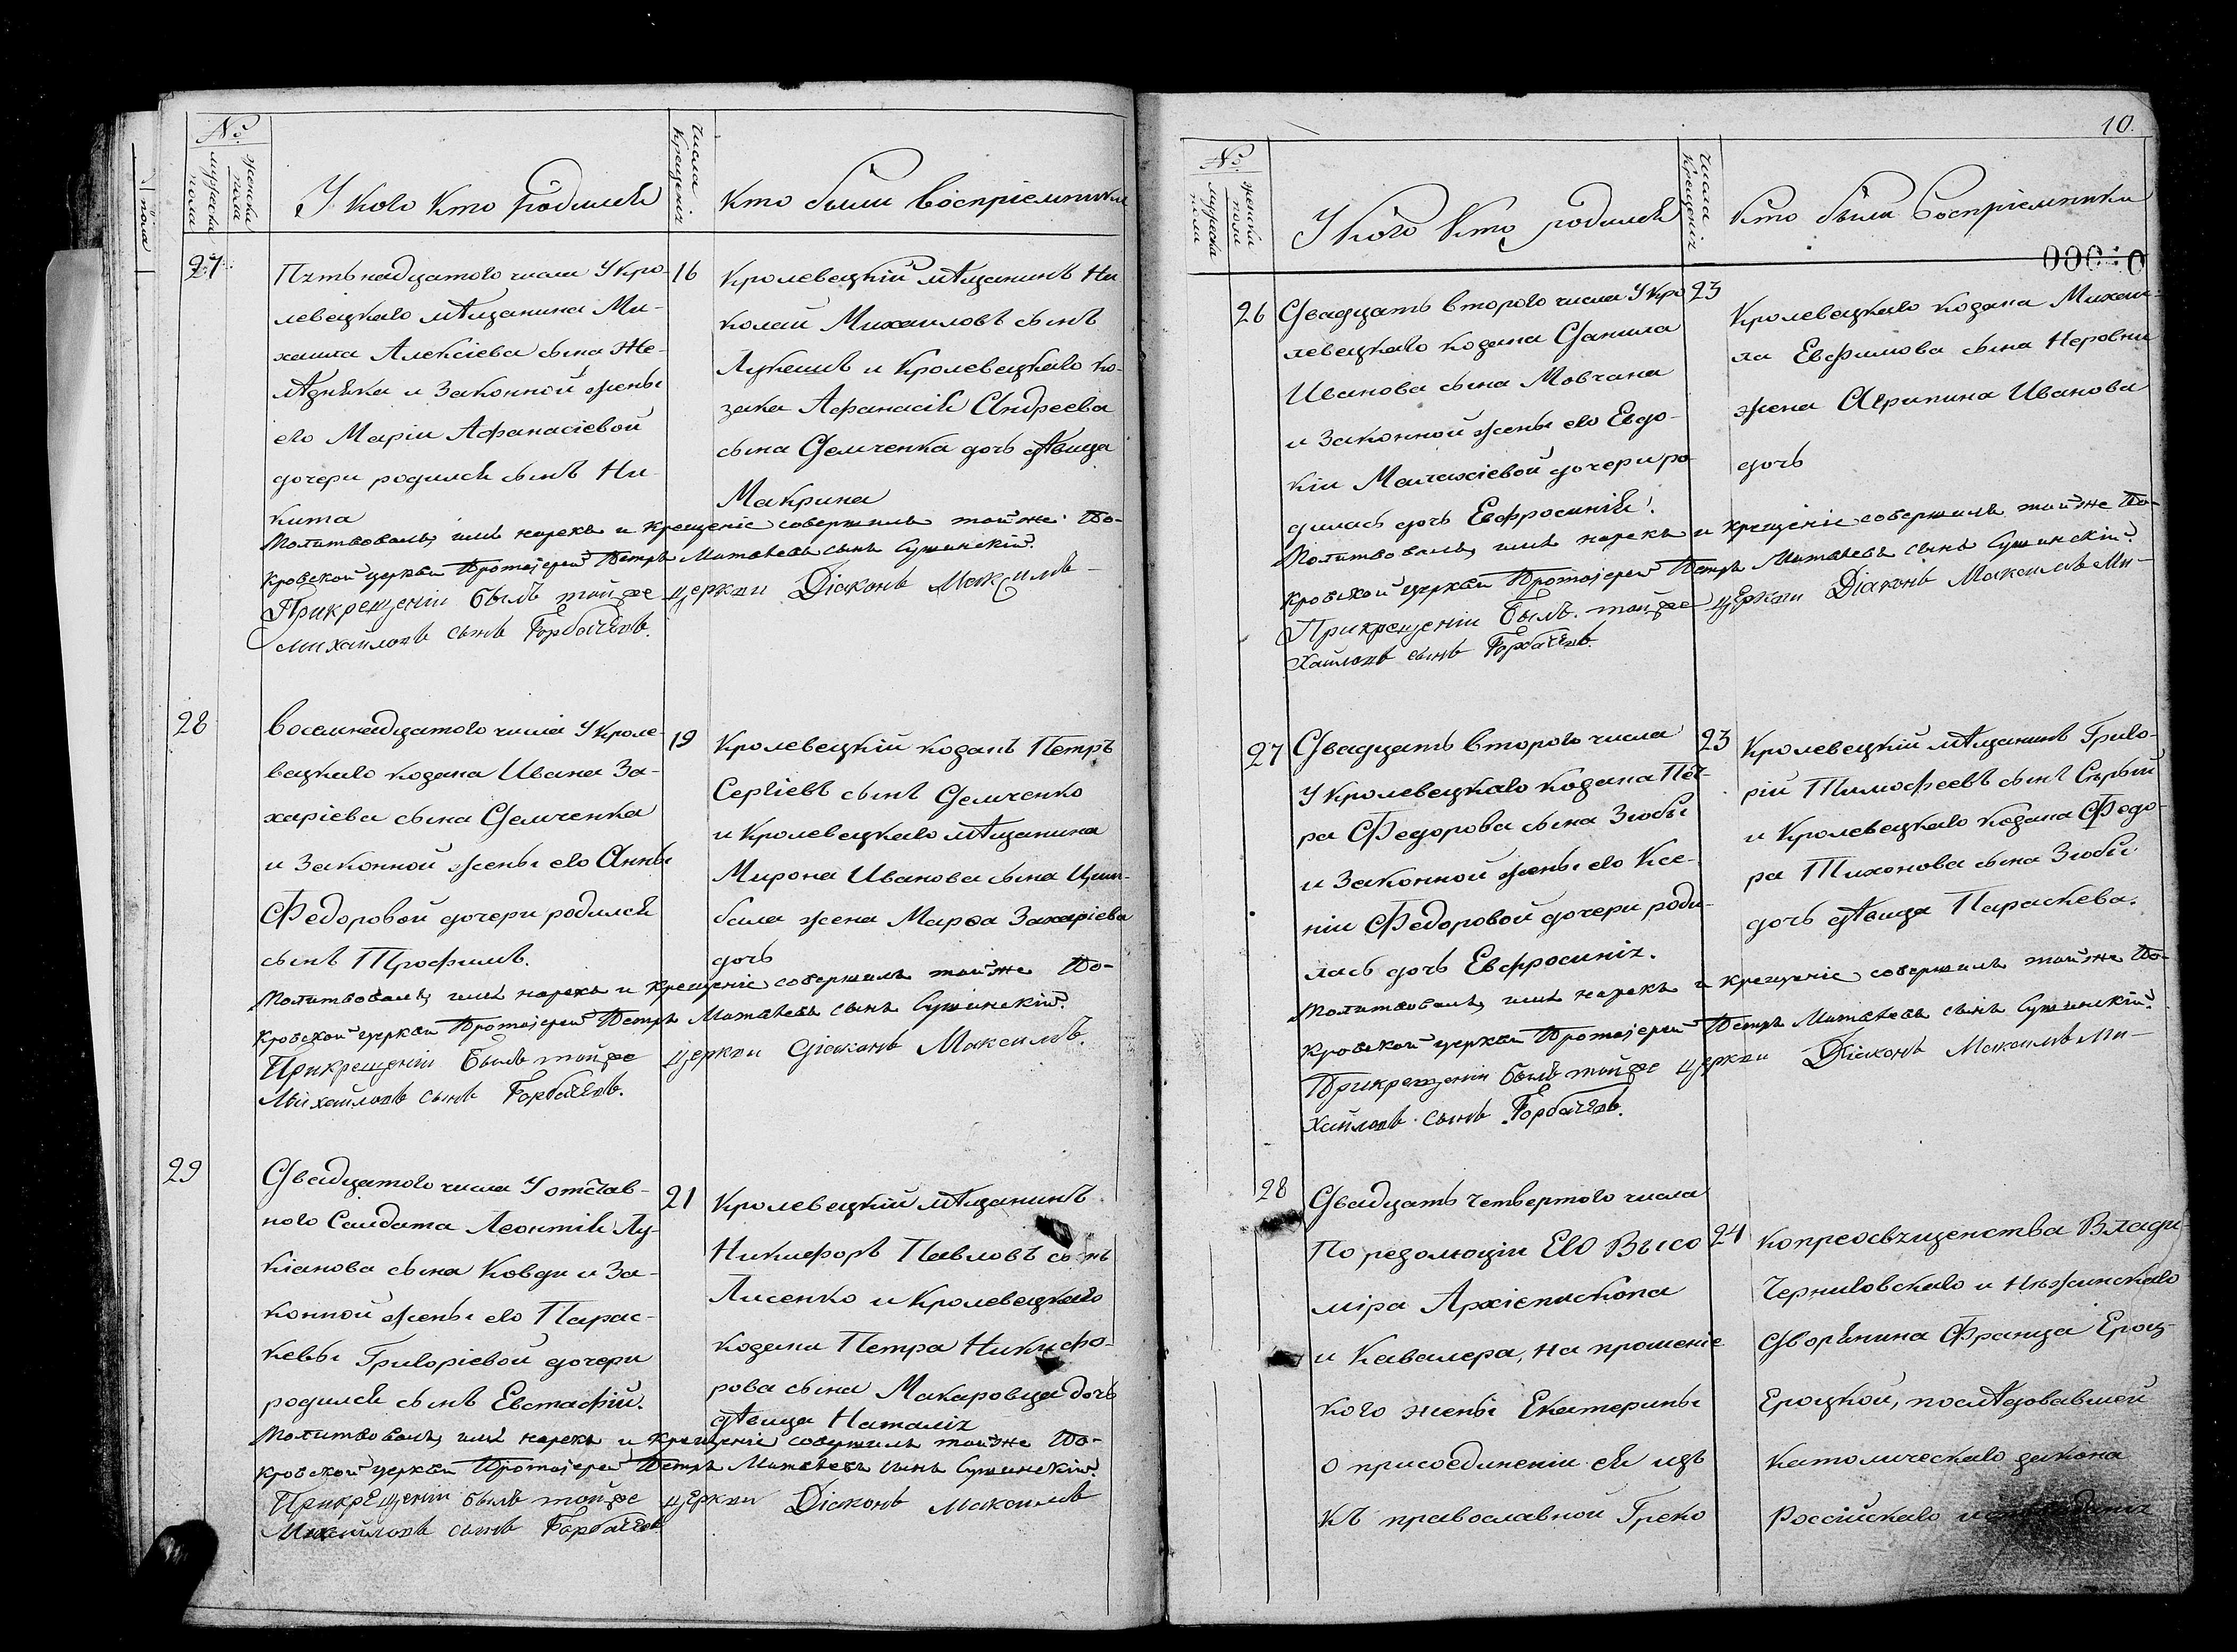 №
женска пола
мужеска пола
У кого кто родился
числа Крещенія
кто были воспріемники
27
Пятьнадцатого числа У Кро-
левецкаго мѣщанина Ми-
хаила Алексіева сына Же-
и Законной жены
его Маріи Афанасіевой
дочери родился сынъ Ни-
кита
16
Кролевецкій мѣщанинъ Ни
колай Михаиловъ сынъ
Лукешъ и Кролевецкаго ко-
зака Афанасія Андреева
сына Демченка дочь дѣвица
Макрина
Молитвовалъ, имя нарекъ и крещеніе совершилъ тойже По-
кровской церкви Протоіерей Петръ Матвѣевъ сынъ Сушинскій.
Прикрещеніи былъ тойже церкви Діаконъ Максимъ
Михайловъ сынъ Горбачевъ.
28
восемнадцатого числа У Кроле-
вецкаго козака Ивана За-
харіева сына Демченка
и Законной жены его Анны
Федоровой дочери родился
сынъ Трофимъ.
19
Кролевецкій козакъ Петръ
Сергіевъ сынъ Демченко
и Кролевецкаго мѣщанина
Мирона Иванова сына Цим-
бала жена Марѳа Захаріева
дочь
Молитвовалъ, имя нарекъ и крещеніе совершилъ тойже По-
кровской церкви Протоіерей Петръ Матвѣевъ сынъ Сушинскій.
Прикрещеніи былъ тойже церкви Діаконъ Максимъ.
Михайловъ сынъ Горбачевъ.
29
Двадцатого числа У отстав-
ного Салдата Леонтія Лу-
кіанова сына Ковди и За-
конной жены его Парас-
кевы Григоріевой дочери
родился сынъ Евстафій.
21
Кролевецкій мѣщанинъ
Никифоръ Павловъ сынъ
Лисенко и Кролевецкаго
козака Петра Никифо-
рова сына Макаровца дочь
дѣвица Наталія
Молитвовалъ, имя нарекъ и крещеніе совершилъ тойже По-
кровской церкви Протоіерей Петръ Матвѣевъ сынъ Сушинскій.
Прикрещеніи былъ тойже церкви Діаконъ Максимъ
Михайловъ сынъ Горбачевъ
10.
№
женска пола
мужеска пола
У кого Кто родился
числа Крещенія
Кто были Воспріемники
26
Двадцать второго числа У Кро
левецкаго козака Данила
Иванова сына Мовчана
и Законной жены его Евдо-
кіи Малахіевой дочери ро-
дилась дочь Евфросинія.
23
Кролевецкаго козака Михаи-
ла Евфимова сына Неровни
жена Агрипина Иванова
дочь
Молитвовалъ, имя нарекъ и крещеніе совершилъ тойже По-
кровской церкви Протоіерей Петръ Матвѣевъ сынъ Сушинскій.
Прикрещеніи былъ тойже церкви Діаконъ Максимъ Ми-
хайловъ сынъ Горбачевъ.
27
Двадцать второго числа
У Кролевецкаго козака Пет-
ра Федорова сына Зюбы
и Законной жены его Ксе-
ніи Федоровой дочери роди-
лась дочь Евфросинія.
23
Кролевецкій мѣщанинъ Григо-
рій Тимофеевъ сынъ Сѣрый
и Кролевецкаго козака Федо-
ра Тихонова сына Зюбы
дочь дѣвица Параскева.
Молитвовалъ, имя нарекъ и крещеніе совершилъ тойже По-
кровской церкви Протоіерей Петръ Матвѣевъ сынъ Сушинскій.
Прикрещеніи былъ тойже церкви Діаконъ Максимъ Ми-
хайловъ сынъ Горбачевъ.
28
Двадцать четвертого числа
По резолюціи Его Высо 24 копреосвященства Влади-
міра Архіепископа Черниговскаго и Нѣжинскаго
и Кавалера, на прошеніе Дворянина Франца Ероц-
кого жены Екатерины Ероцкой, послѣдовавшей
о присоединеніи ея изъ католическаго закона
къ православной Греко Россійскаго